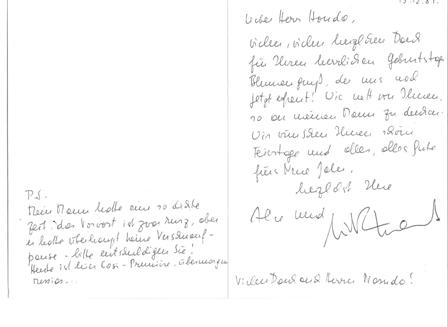 Lieber Herr Hondo,
vielen, vielen herzlichen Dank
für Ihren herrlichen Geburtstags
Blumengruß, der uns noch
jetzt erfreut! Wie nett von Ihnen,
so an meinen Mann zu denken.
Wir wünschen Ihnen schöne
Feiertage und alles, alles Gute
fürs Neue Jahr,
herzlichst Ihre
und
Vielen Dank auch Herrn
P.S.
Mein Mann hatte eine so dichte
Zeit: das Vorwort ist zwar kurz, aber
er hatte überhaupt keine Verschnauf-
pause - bitte entschuldigen Sie!
Heute ist hier Cosi-Premiere, übermorgen